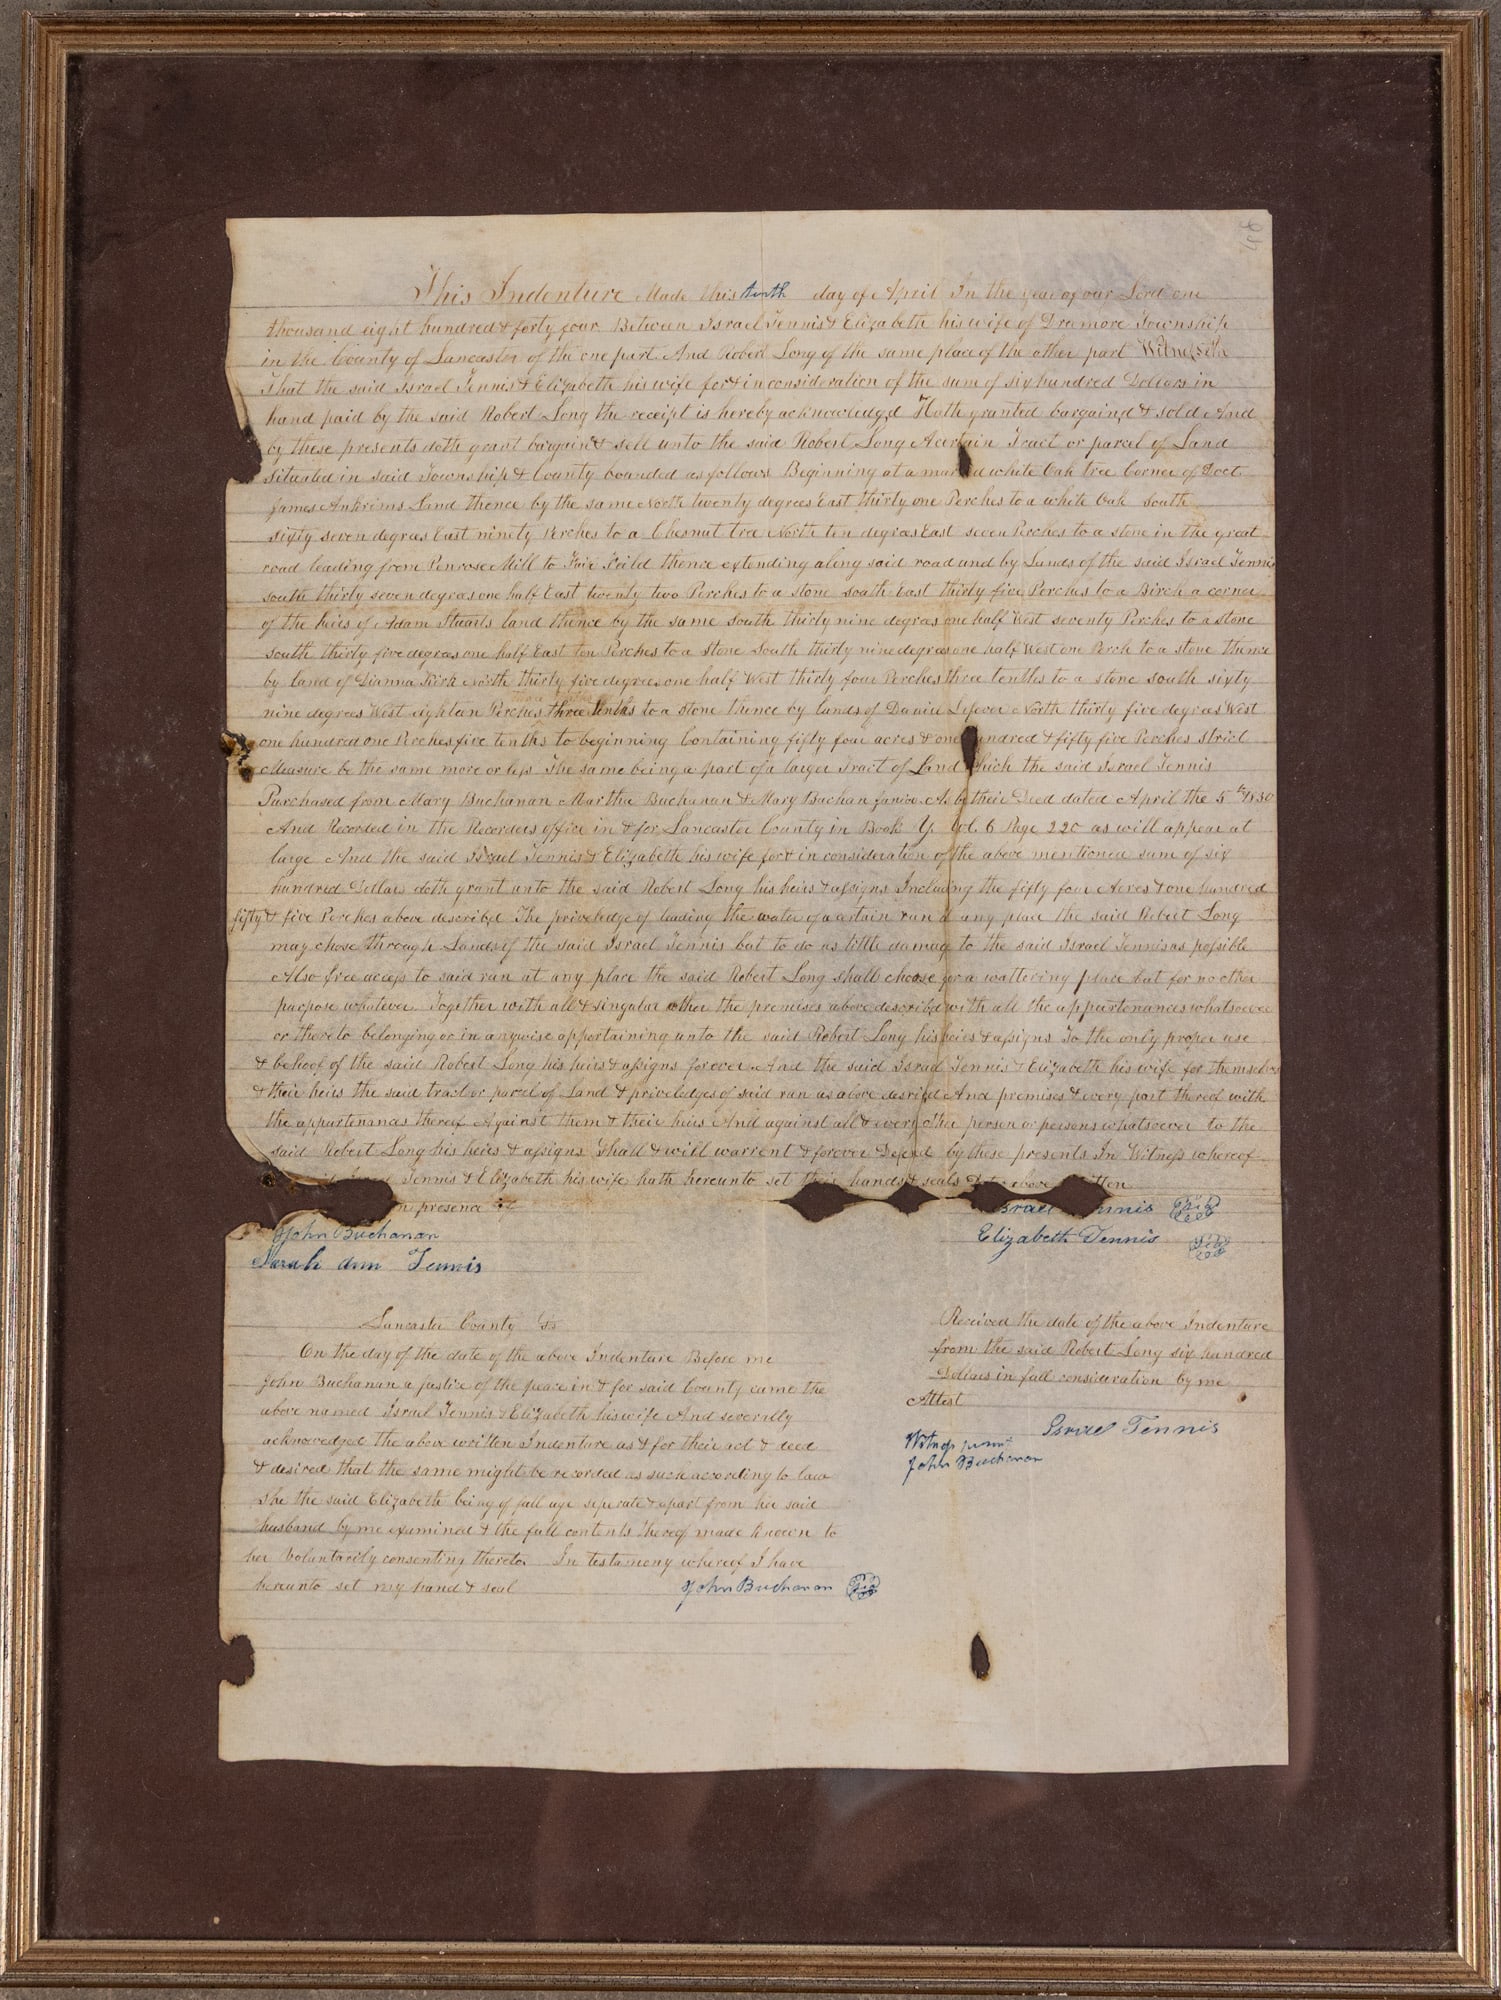 This Indenture Made this tenth day of April In the year of our Lord one
thousand eight hundred & forty four Between Israel Tennis & Elizabeth his wife of Dremore Township
in the County of Lancaster of the one part And Robert Long of the same place of the other part Witnesseth
That the said Israel Tennis & Elizabeth his wife for & in consideration of the sum of six hundred Dollars in
hand paid by the said Robert Long the receipt is hereby acknowledged Hath granted bargaind & sold And
by these presents doth grant bargain & sell unto the said Robert Long A certain Tract or parcel of Land
situated in said Township & County bounded as follows Beginning at a mar d white Oak tree Corner of Doct
James Ankrims Land thence by the same North twenty degrees East thirty one Perches to a white Oak South
sixty seven degrees East ninety Perches to a Chesnut tree North ten degrees East seven Perches to a stone in the great
road leading from Penrose Mill to Fair Feild thence extending along said road and by Lands of the said Israel Tennis
south thirty seven degrees one half East twenty two Perches to a stone south East thirty five Perches to a Birch a corner
of the heirs of Adam Stuarts land thence by the same South thirty nine degrees one half West seventy Perches to a stone
south thirty five degrees one half East ten Perches to a stone South thirty nine degrees one half West one Perch to a stone thence
by land of Dianna Kirk North thirty five degrees one half West thirty four Perches three tenths to a stone south sixty
nine degrees West eighteen Perches three tenths to a stone thence by lands of Daniel Lefever North thirty five degrees West
one hundred one Perches five tenths to beginning Containing fifty four acres & one undred & fifty five Perches strict
Measure be the same more or less The same being a part of a larger Tract of Land which the said Israel Tennis
Purchased from Mary Buchanan Martha Buchanan & Mary Buchan Junior As by their Deed dated April the 5th 1830
And Recorded in the Recorders office in & for Lancaster County in Book Y Vol. 6 Page 220 as will appear at
large And the said Israel Tennis & Elizabeth his wife for & in consideration of the above mentioned sum of six
hundred Dollars doth grant unto the said Robert Long his heirs & assigns Including the fifty four Acres & one hundred
fifty & five Perches above described The priveledge of leading the water of a certain run at any place the said Robert Long
may chose through Lands of the said Israel Tennis but to do as little damage to the said Israel Tennis as possible
Also free access to said run at any place the said Robert Long shall choose for a wattering place but for no other
purpose whatever Together with all & singular other the premises above described with all the appurtenances whatsoever
or thereto belonging or in anywise appertaining unto the said Robert Long his heirs & assigns To the only proper use
& behoof of the said Robert Long his heirs & assigns forever And the said Israel Tennis & Elizabeth his wife for themselves
& their heirs the said tract or parcel of Land & priveledges of said run as above desribed And premises & every part thereof with
the appurtenances thereof Against them & their heirs And against all & every other person or persons whatsoever to the
said Robert Long his heirs & assigns Shall & will warrent & forever Defend by these presents In Witness whereof
Tennis & Elizabeth his wife hath hereunto set their hands & seals Date above written
in presence of
Israel Tennis Seal
John Buchanan
Elizabeth Tennis Seal
Sarah Ann Tennis
Lancaster County Ss
On the day of the date of the above Indenture Before me
John Buchanan a justice of the peace in & for said County came the
above named Israel Tennis & Elizabeth his wife And severally
acknowedged the above written Indenture as & for their act & deed
& desired that the same might be recorded as such according to law
She the said Elizabeth being of full age seperate & apart from her said
husband by me examined & the full contents thereof made known to
her Voluntarily consenting thereto In testamony whereof I have
hereunto set my hand & seal John Buchanan Seal
Received the date of the above Indenture
from the said Robert Long six hundred
Dollars in full consideration by me
Attest
Israel Tennis
Witness
John Buchanan